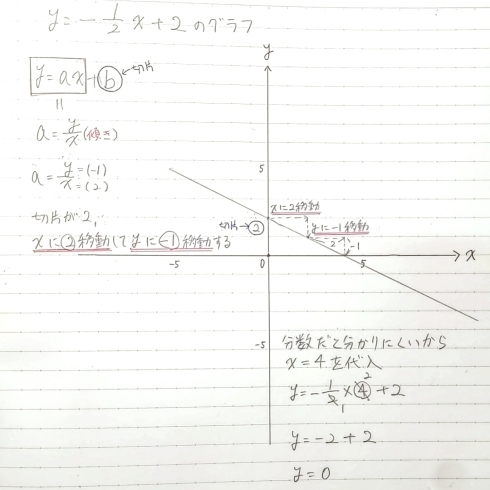 y = -1/2 x + 2 のグラフ
y = ax + b ←切片
〃
a = y/x (傾き)
a = y/x = (-1)/(2)
切片が2、
xに②移動してyに-1移動する
y
5
xに2移動
切片→②
yに-1移動
2
-1
-5
0
5
x
-5
分数だと分かりにくいから
x = 4 を代入
y = -1/2 × 4 + 2
2
1
y = -2 + 2
y = 0